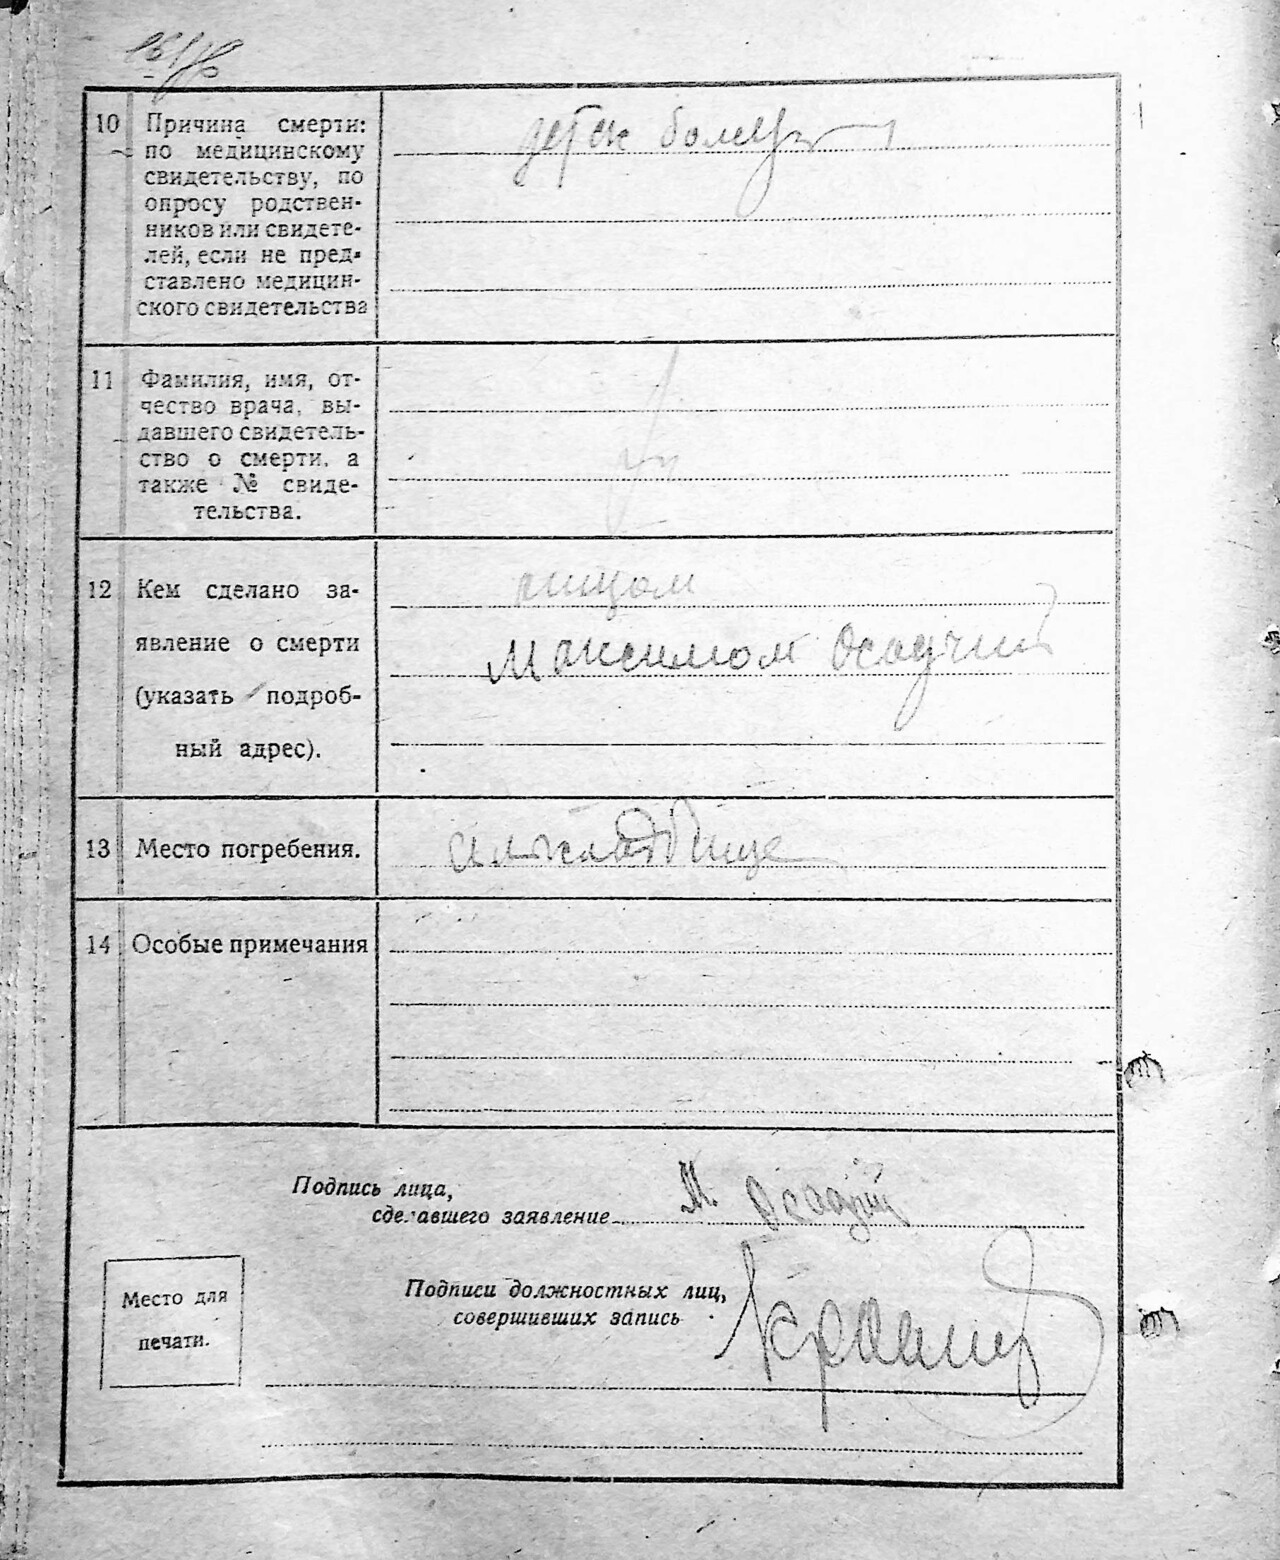 10 Причина смерти:
по медицинскому
свидетельству, по
опросу родствен-
ников или свидете-
лей, если не пред-
ставлено медицин-
ского свидетельства
детск болезн
11 Фамилия, имя, от-
чество врача, вы-
давшего свидетель-
ство о смерти, а
также № свиде-
тельства.
12 Кем сделано за-
явление о смерти
(указать подроб-
ный адрес).
Максимом Осадчий
13 Место погребения.
14 Особые примечания
Подпись лица,
сделавшего заявление М. Осадчий
Подписи должностных лиц,
совершивших запись
Место для
печати.